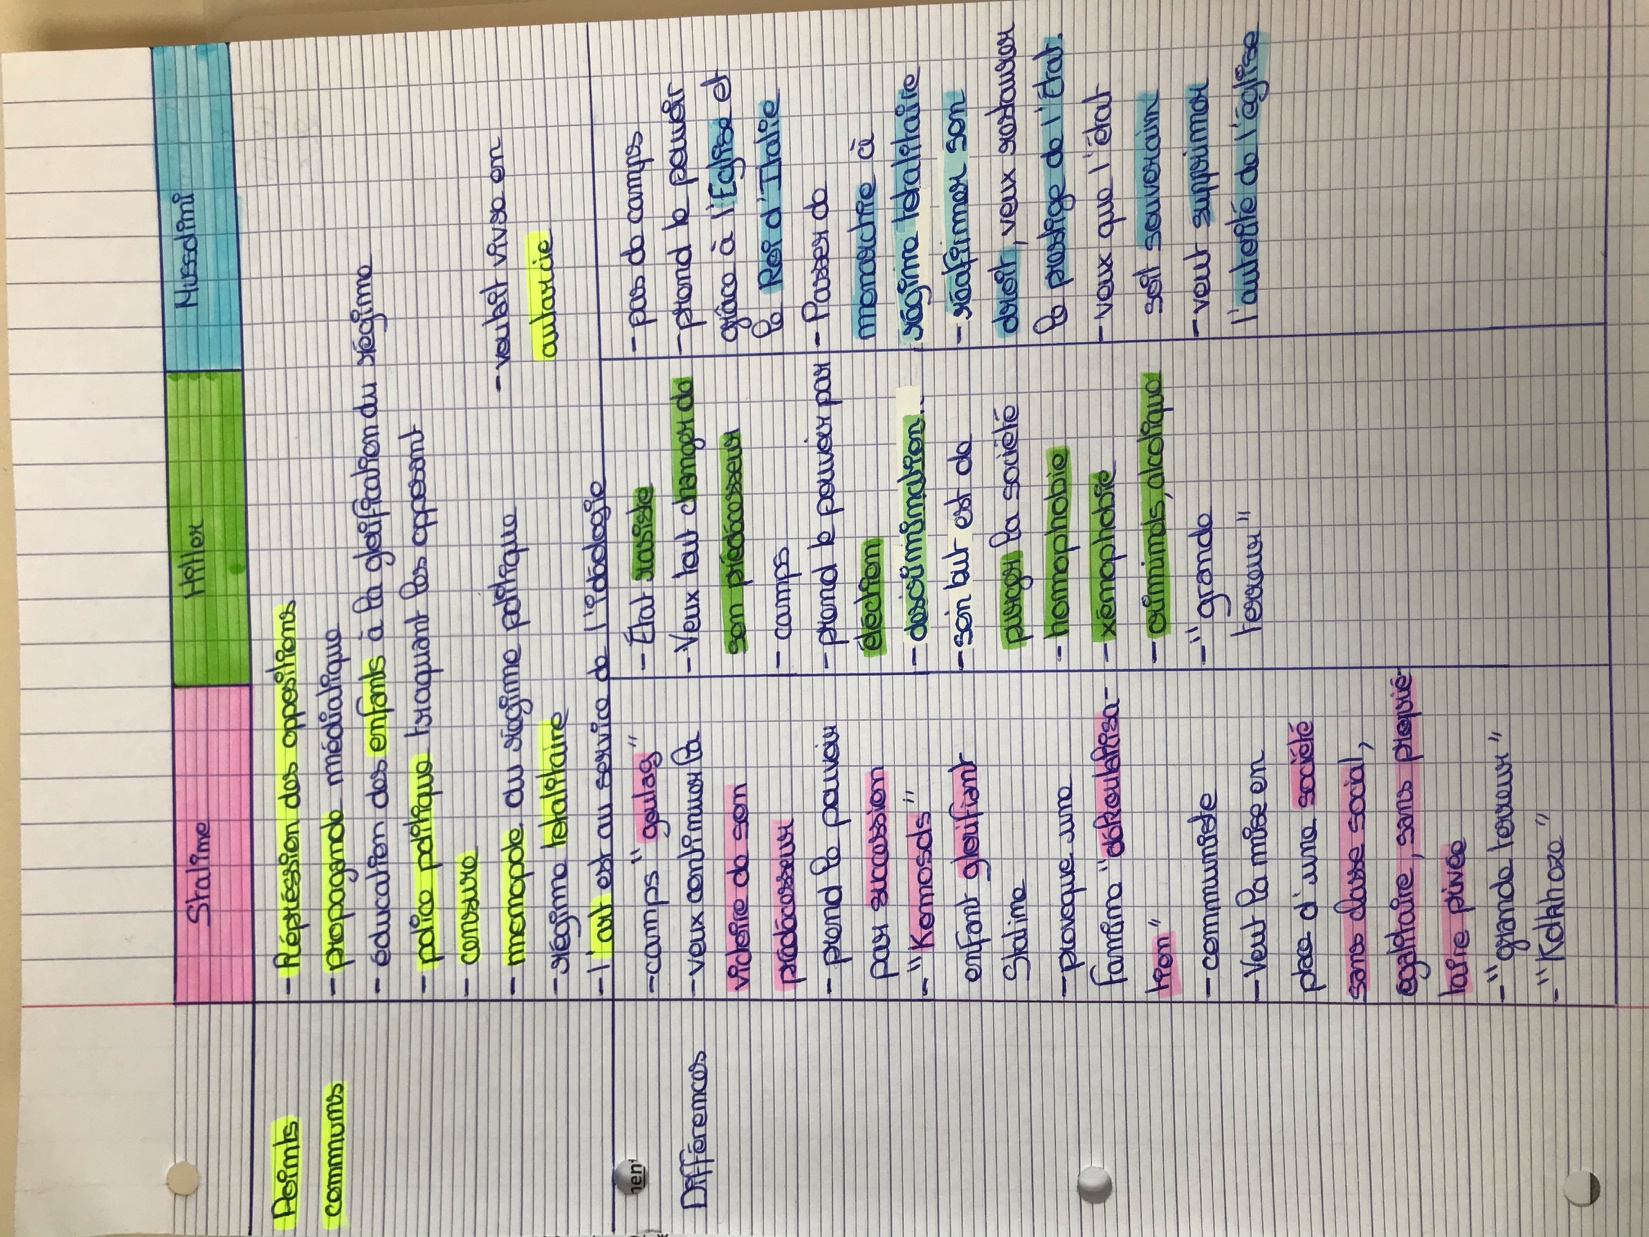 Staline
Hitler
Mussolini
Points
communs
- Répréssion des oppositions
- propagande médiatique
- éducation des enfants à la glorification du régime
- police politique traquant les opposant
- censure
- monopole du régime politique
- régime totalitaire
- l'art est au service de l'idéologie
- voulait vivre en
autarcie
Différences
- camps "goulag"
- veux continuer la
victoire de son
prédécesseur
- prend le pouvoir
par succession
- "Komosols"
enfant glorifiant
Staline
- provoque une
famine "dékoulakisa-
tion"
- communiste
- Veut la mise en
place d'une société
sans classe social,
égalitaire, sans proprié-
taire privée
- "grande terreur"
- "Kolkhoze"
- État raciste
- Veux tout changer de
son prédécesseur
- camps
- prend le pouvoir par
élection
- descrimination..
- son but est de
purger la société
- homophobie
- xénophobie
- criminels, alcolique
- "grande
terreur"
- pas de camps
- prend le pouvoir
grâce à l'Eglise et
le Roi d'Italie
- Passer de
monarchie à
régime totalitaire
- réafirmer son
droit, veux restaurer
le prestige de l'État.
- veux que l'état
soit souverain
- veut supprimer
l'autorité de l'église